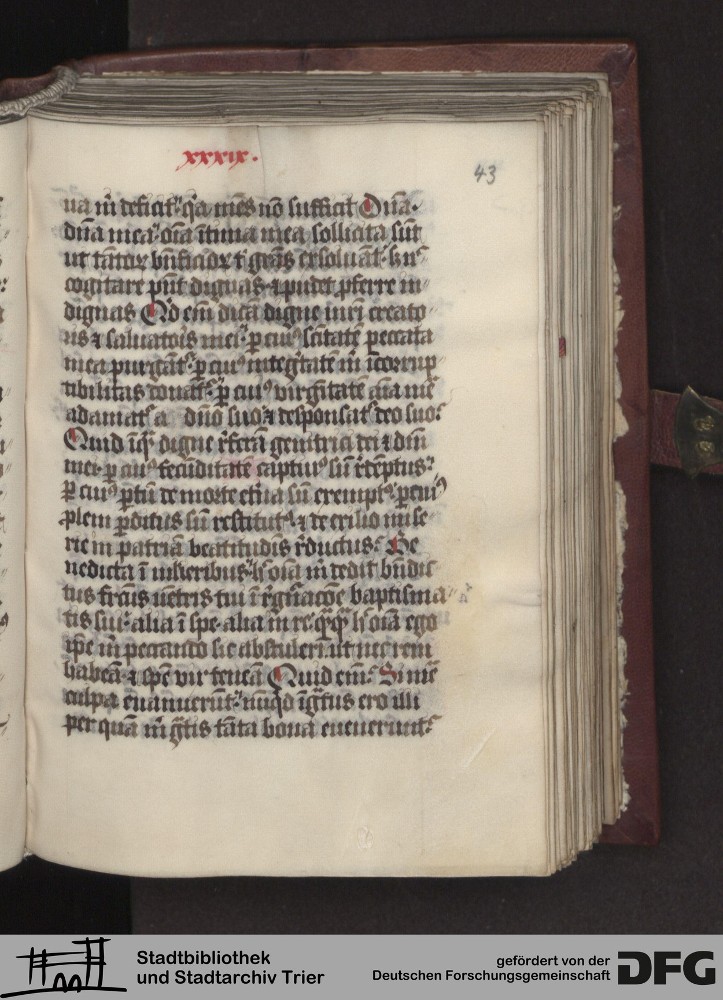 xxxix.
43
ua m̄ deficit. q̄a mēs nō sufficit Dn̄a.
dn̄a mea. oīa ītima mea sollicita sūt
ut tātoꝝ bn̄ficioꝝ t' gr̄as exsoluāt. s;
cogitare pn̄t dignas ⁊ pudet ꝓferre in
dignas Qd em̄ dicā digne mr̄i creato
ris ⁊ saluatoris mei. ꝑ cui⁹ sc̄itatē peccata
mea purgāt᷑. ꝑ cui⁹ integ̓tatē m̄ īcorrup
tibilitas donat᷑. ꝑ cui⁹ virg̓itatē aīa mē
adamat᷑ a dn̄o suo ⁊ desponsat᷑ deo suo.
Quid īq̄ digne r̄ferā genitrici dei ⁊ dn̄i
mei. ꝑ cui⁹ fecūditatē captiu⁹ sū r̄deptus.
ꝑ cui⁹ ꝑtū de morte et̄na sū exempt⁹. ꝑ cui⁹
ꝓlem ꝑditus sū restitut⁹. ⁊ de exilio mise
rie in patriā beatitudīs r̄ductus. Be
nedicta ī mlieribus. h̄ oīa m̄ dedit bn̄dic
tus fruct⁹ uētris tui ī r̄gn̄acōe baptisma
tis sui. alia ī spe. alia in re. q̄q̄ h̄ oīa ego
ip̄e m̄ peccando sic abstulerī. ut nec rem
habeā. ⁊ spē vix teneā Quid em̄. Si mē
culpa euanuerūt. nūqd īg̓tus ero illi
per quā m̄ g̓tis tāta bona euenerunt.
Stadtbibliothek
und Stadtarchiv Trier
gefördert von der
Deutschen Forschungsgemeinschaft
DFG